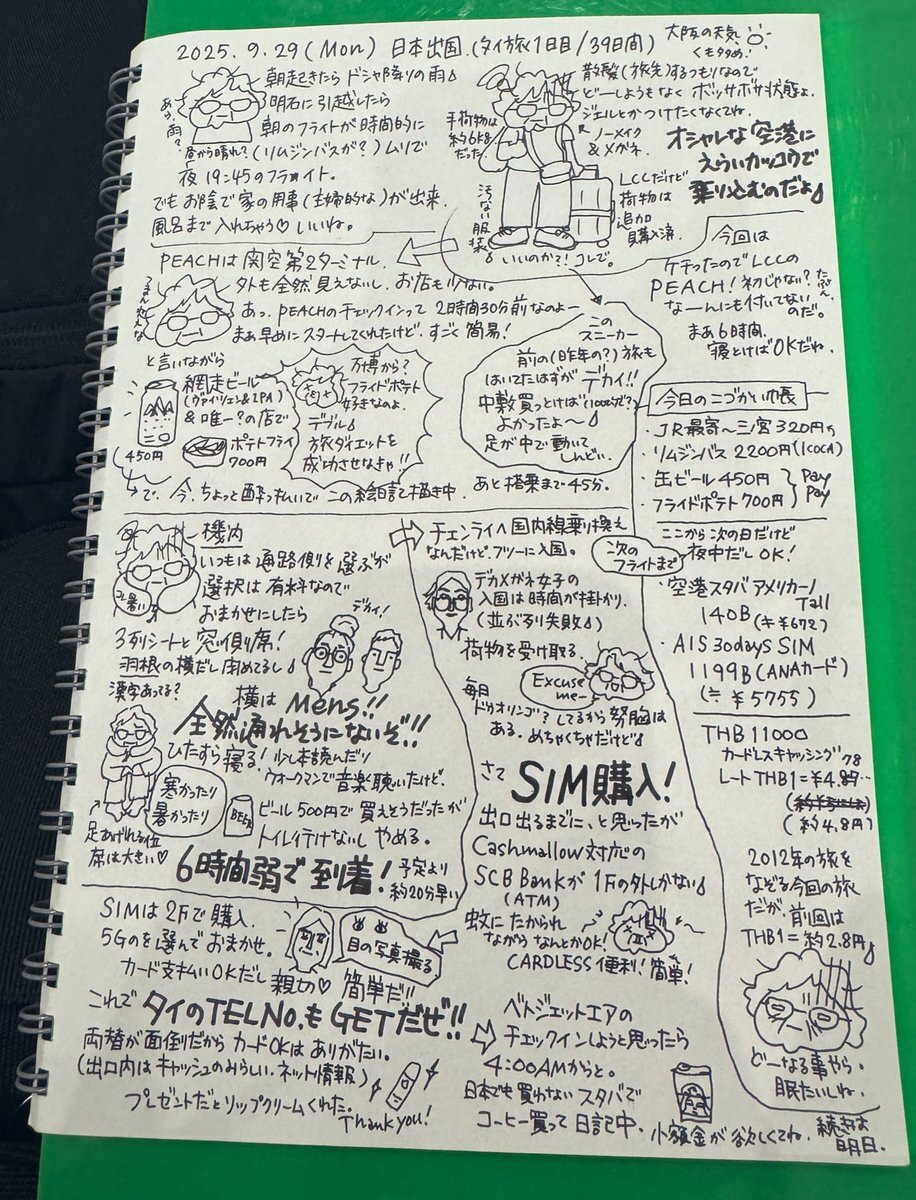 2025.9.29(Mon) 日本出国.(タイ旅1日目/39日間)
大阪の天気
くもタタめ.
朝起きたら ドシャ降りの雨♪
明石に引越したら
朝のフライトが時間的に
(リムジンバスが?)ムリで
夜19:45のフライト。
でもお陰で家の用事(主婦的な)が出来.
風呂まで入れちゃう♡ いいね。
あら、雨?
昼から晴れ?
手荷物は
約6k8
だった.
散髪(旅先)するつもりなので
どーしようもなく ボッサボサ状態よ.
ジェルとかつけたくなくてね.
ノーメイク
&メガネ.
オシャレな空港に
えらいカッコウで
乗り込むのだよ♪
LCCだけど
荷物は
追加
購入済.
汚くない服装♪
いいのか?!コレで.
PEACHは関空第2ターミナル.
外も全然見えないし、お店も少ない.
あっ、PEACHのチェックインって 2時間30分前なのよー
まぁ早めにスタートしてくれたけど. すごく簡易!
今回は
ケチったのでLCCの
PEACH!初じゃない?たぶん.
なーんにも付いてない
のだ。
まあ6時間.
寝とけばOKだね.
と言いながら
網走ビール
(ヴァイツェン&IPA)
&唯一?の店で
ポテトフライ
700円
450円
万博から?
フライドポテト
好きなのよ.
デブル♪
旅ダイエットを
成功させなきゃ!!
で、今、ちょっと酔っ払いで この絵日記を描き中. あと搭乗まで45分.
この
スニーカー
前の(昨年の?)旅も
はいてたはずが デカイ!!
中敷買っとけば(100均で?)
よかったよ〜♪
足が中で動いて
しんどい.
今日のこづかい帳
・JR最寄〜三宮 320円
・リムジンバス 2200円(ICOCA)
・缶ビール 450円
・フライドポテト 700円
Pay
Pay
機内
いつもは通路側を選ぶが
選択は有料なので
おまかせにしたら
3列シートと窓側席!
羽根の横だし閉めてるし♪
漢字あってる?
デカイ!
横は Mens!!
全然通れそうにないぞ!!
ひたすら寝る!少し本読んだり
ウォークマンで音楽聴いたけど.
寒かったり
暑かったり
BEER
ビール500円で買えそうだったが
トイレ行けないし やめる.
足あげれる位
席は大きい♡
6時間弱で到着!
予定より
約20分早い
チェンライへ国内線乗り換え
なんだけど、フツーに入国。
デカメガネ女子の
入国は時間が掛かり.
(並ぶ列失敗♪)
荷物を受け取る.
Excuse
me-
毎日
ドゥオリンゴ?してるから努胸は
ある. めちゃくちゃだけど♪
さて SIM購入!
出口出るまでに、と思ったが
Cashmallow対応の
SCB Bankが1Fの外しかない♪
(ATM)
蚊にたかられ
ながら なんとかOK!
CARDLESS 便利!簡単!
次の
フライトまで
ここから次の日だけど
夜中だし OK!
・空港スタバ アメリカーノ
Tall
140B(≒¥672)
・AIS 30days SIM
1199B(ANAカード)
(≒¥5755)
THB 11000
カードレスキャッシング
レートTHB1=¥4.78..
(約4.8円)
2012年の旅を
なぞる今回の旅
だが、前回は
THB1=約2.8円♪
どーなる事やら.
眠たいしね.
続きは
明日.
SIMは2Fで購入.
5Gのを選んでおまかせ.
カード支払いOKだし 親切♡ 簡単だ!!
目の写真撮る
これで タイのTELNo.も GETだぜ!!
両替が面倒だから カードOKは ありがたい.
(出口内はキャッシュのみらしい.ネット情報)
プレゼントだとリップクリームくれた.
Thank you!
ベトジェットエアの
チェックインしようと思ったら
4:00AMからと.
日本でも買わない スタバで
コーヒー買って 日記中.
小額金が欲しくてね.